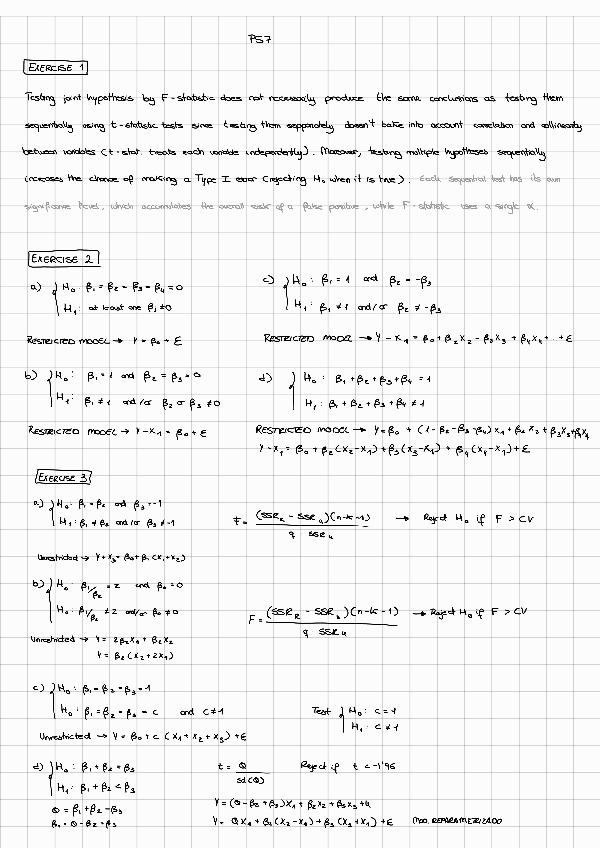 PS7
EXERCISE 1
Testing joint hypothesis by F-statistic does not necessarily produce the same conclusions as testing them
sequentially using t-statistic tests since testing them sepparately doesn't take into account correlation and collinearity
between variables (t-stat. treats each variable independently). Moreover, testing multiple hypotheses sequentially
increases the chance of making a Type I error (rejecting H₀ when it is true). Each sequential test has its own
significance level, which accumulates the overall risk of a false positive, while F-statistic uses a single α.
EXERCISE 2
a) { H₀: β₁ = β₂ = β₃ = β₄ = 0
H₁: at least one βⱼ ≠ 0
RESTRICTED MODEL → Y = β₀ + ε
b) { H₀: β₁ = 1 and β₂ = β₃ = 0
H₁: β₁ ≠ 1 and/or β₂ or β₃ ≠ 0
RESTRICTED MODEL → Y - X₁ = β₀ + ε
c) { H₀: β₁ = 1 and β₂ = -β₃
H₁: β₁ ≠ 1 and/or β₂ ≠ -β₃
RESTRICTED MODEL → Y - X₁ = β₀ + β₂X₂ - β₂X₃ + β₄X₄ + ... + ε
d) { H₀: β₁ + β₂ + β₃ + β₄ = 1
H₁: β₁ + β₂ + β₃ + β₄ ≠ 1
RESTRICTED MODEL → Y = β₀ + (1 - β₂ - β₃ - β₄) X₁ + β₂X₂ + β₃X₃ + β₄X₄
Y - X₁ = β₀ + β₂(X₂ - X₁) + β₃(X₃ - X₁) + β₄(X₄ - X₁) + ε
EXERCISE 3
a) { H₀: β₁ = β₂ and β₃ = -1
H₁: β₁ ≠ β₂ and/or β₃ ≠ -1
F = (SSRR - SSRu)(n-k-1) / q SSRu → Reject H₀ if F > CV
Unrestricted → Y + X₃ = β₀ + β₁(X₁ + X₂)
b) { H₀: β₁/β₂ = 2 and β₀ = 0
H₀: β₁/β₂ ≠ 2 and/or β₀ ≠ 0
F = (SSRR - SSRu)(n-k-1) / q SSRu → Reject H₀ if F > CV
Unrestricted → Y = 2β₂X₁ + β₂X₂
Y = β₂(X₂ + 2X₁)
c) { H₀: β₁ = β₂ = β₃ = 1
H₀: β₁ = β₂ = β₃ = c and c ≠ 1
Test { H₀: c = 1
H₁: c ≠ 1
Unrestricted → Y = β₀ + c (X₁ + X₂ + X₃) + ε
d) { H₀: β₁ + β₂ = β₃
H₁: β₁ + β₂ < β₃
t = θ / sd(θ) Reject if t < -1'96
θ = β₁ + β₂ - β₃
β₁ = θ - β₂ + β₃
Y = (θ - β₂ + β₃)X₁ + β₂X₂ + β₃X₃ + u
Y = θX₁ + β₂(X₂ - X₁) + β₃(X₃ + X₁) + ε MOD. REPARAMETRIZADO